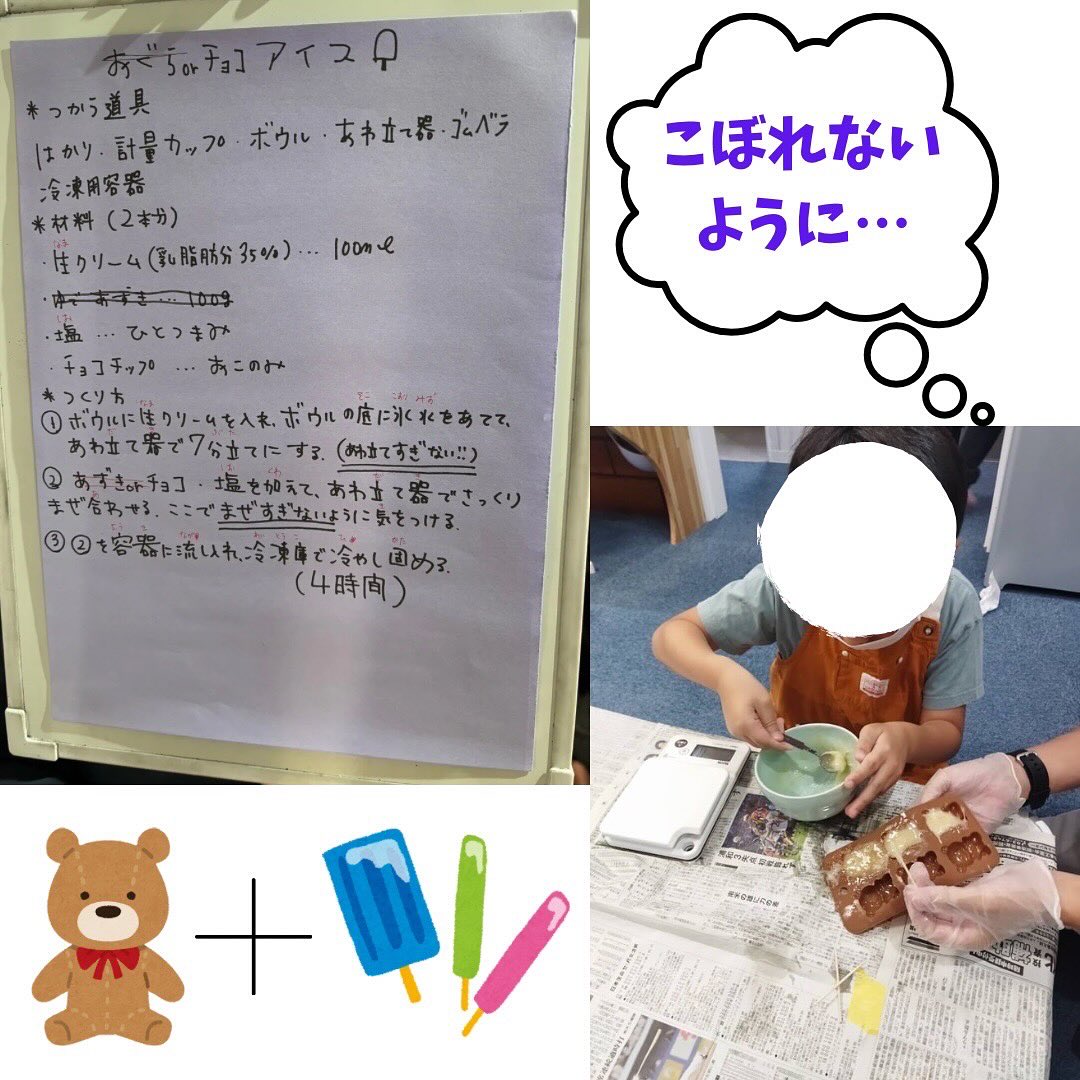 あずきorチョコアイス
*つかう道具
はかり・計量カップ・ボウル・あわ立て器・ゴムベラ
冷凍用容器
*材料(2本分)
・生クリーム(乳脂肪分35%)… 100ml
・ゆであずき… 100g
・塩 … ひとつまみ
・チョコチップ … おこのみ
*つくり方
①ボウルに生クリームを入れ、ボウルの底に氷水をあてて、
あわ立て器で7分立てにする。(あわ立てすぎない!!)
②あずきorチョコ・塩を加えて、あわ立て器でさっくり
まぜ合わせる。ここでまぜすぎないように気をつける。
③②を容器に流し入れ、冷凍庫で冷やし固める。
(4時間)
こぼれない
ように…